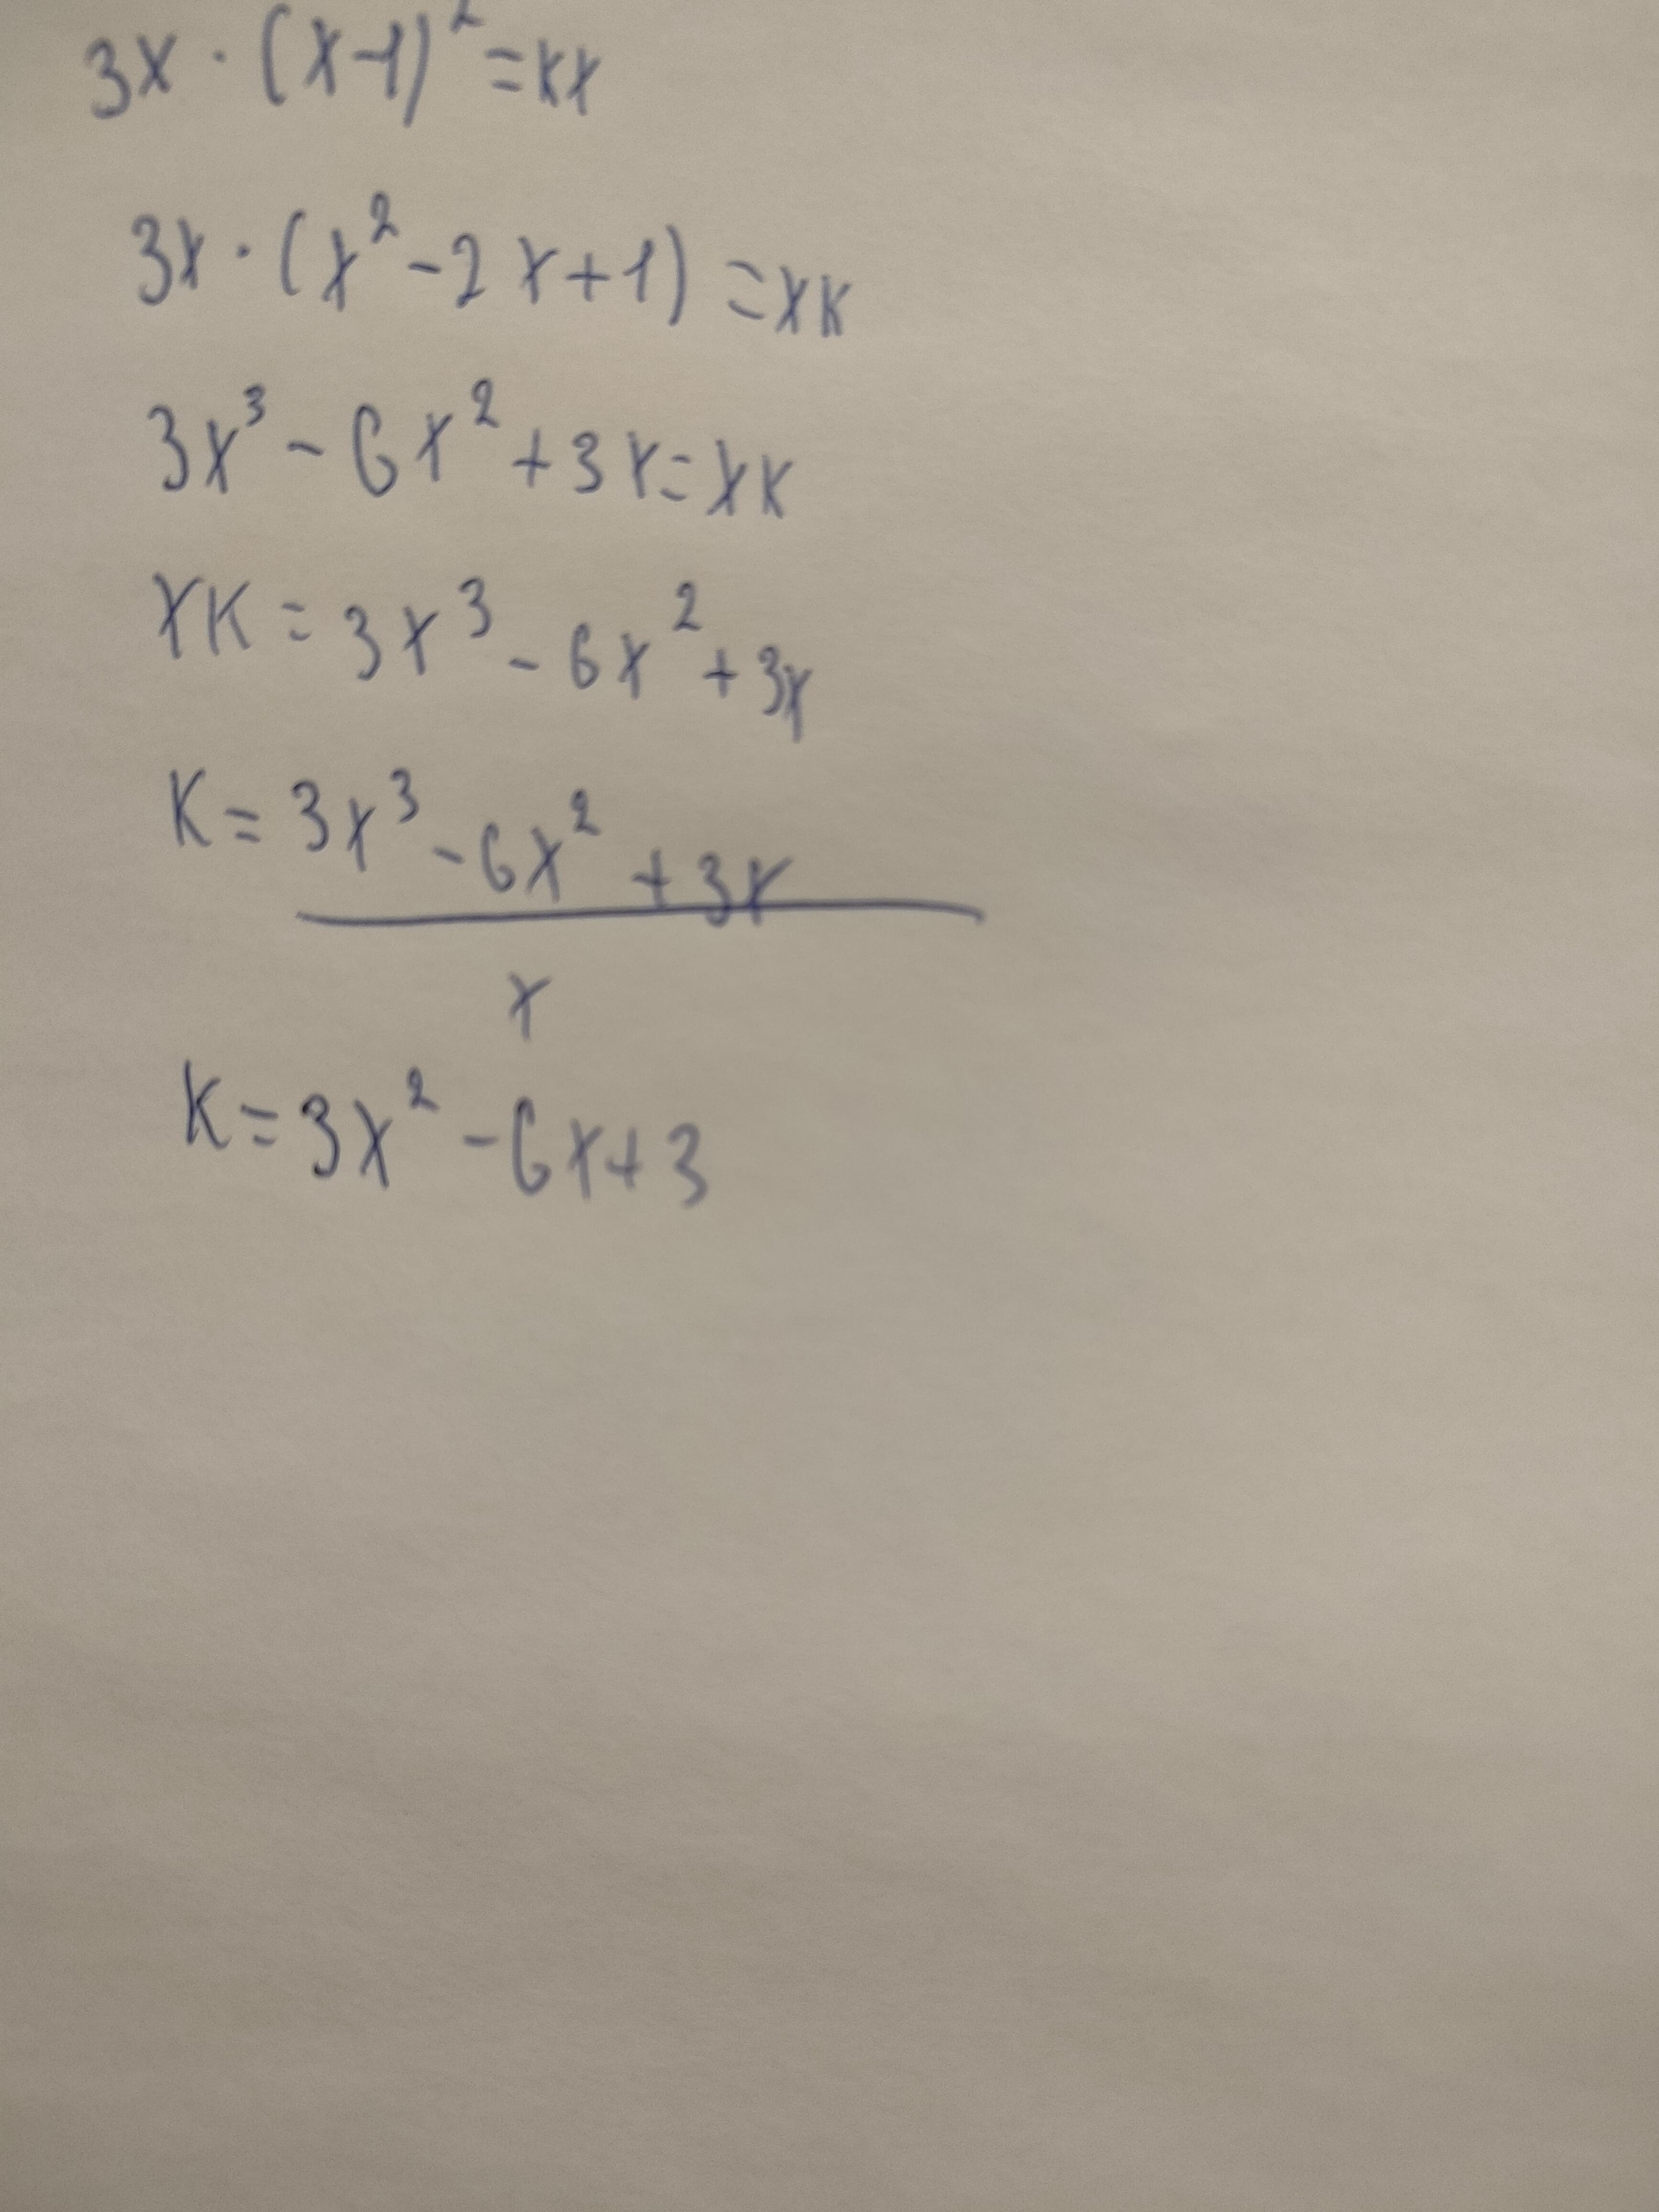 3x · (x-1)² = kx
3x · (x² - 2x + 1) = xk
3x³ - 6x² + 3x = xk
xk = 3x³ - 6x² + 3x
k = 3x³ - 6x² + 3x
x
k = 3x² - 6x + 3